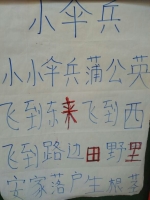 小伞兵
小小伞兵蒲公英
飞到东来飞到西
飞到路边田野里
安家落户生根芽